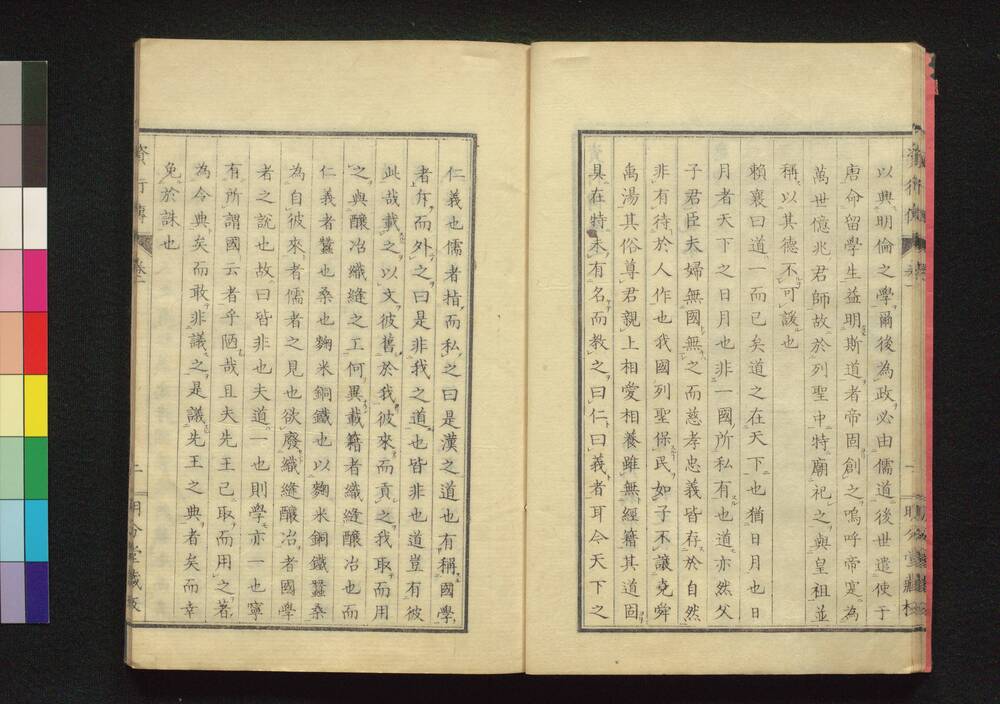 以典明倫之學爾後為政必由儒道後世遣使于
唐命留學生益明斯道者帝固創之嗚呼帝寔為
萬世億兆君師故於列聖中特廟祀之與皇祖並
稱以其德不可諼也
賴襄曰道一而已矣道之在天下也猶日月也日
月者天下之日月也非一國所私有也道亦然父
子君臣夫婦無國無之而慈孝忠義皆存於自然
非有待於人作也我國列聖保民如子不讓堯舜
禹湯其俗尊君親上相愛相養雖無經籍其道固
具在特未有名而教之曰仁曰義者耳今天下之
仁義也儒者揩而私之曰是漢之道也有稱國學
者斥而外之曰是非我之道也皆非也道豈有彼
此哉載之以文彼舊於我彼來而貢之我取而用
之與釀冶織縫之工何異載籍者織縫釀冶也而
仁義者蠶也桑也麴米銅鐵也以麴米銅鐵蠶桑
為自彼來者儒者之見也欲廢織縫釀冶者國學
者之說也故曰皆非也夫道一也則學亦一也寧
有所謂國云者乎陋哉且夫先王已取而用之著
為今典矣而敢非議之是議先王之典者矣而幸
免於誅也
卷一
二